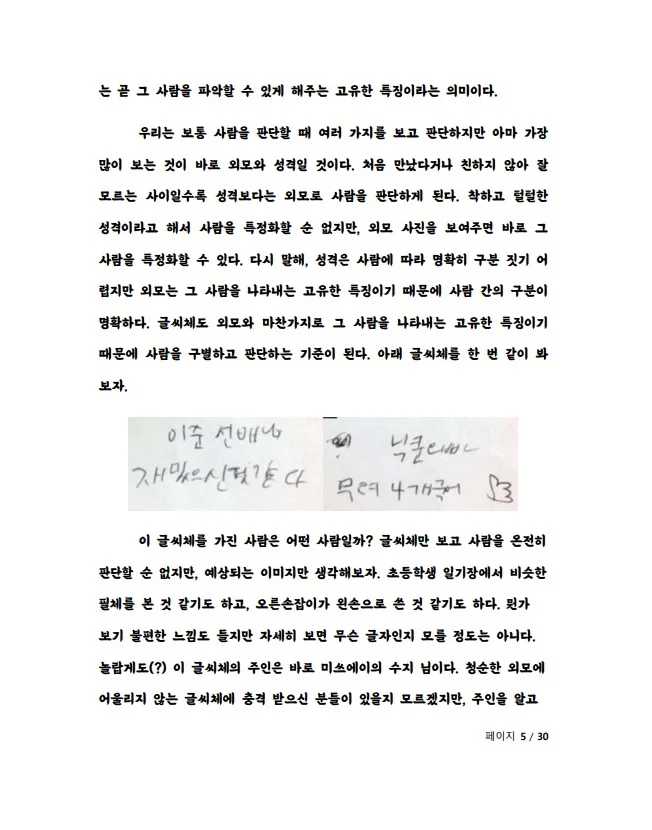 는 곧 그 사람을 파악할 수 있게 해주는 고유한 특징이라는 의미이다.
우리는 보통 사람을 판단할 때 여러 가지를 보고 판단하지만 아마 가장
많이 보는 것이 바로 외모와 성격일 것이다. 처음 만났다거나 친하지 않아 잘
모르는 사이일수록 성격보다는 외모로 사람을 판단하게 된다. 착하고 털털한
성격이라고 해서 사람을 특정화할 순 없지만, 외모 사진을 보여주면 바로 그
사람을 특정화할 수 있다. 다시 말해, 성격은 사람에 따라 명확히 구분 짓기 어
렵지만 외모는 그 사람을 나타내는 고유한 특징이기 때문에 사람 간의 구분이
명확하다. 글씨체도 외모와 마찬가지로 그 사람을 나타내는 고유한 특징이기
때문에 사람을 구별하고 판단하는 기준이 된다. 아래 글씨체를 한 번 같이 봐
보자.
이준 선배님
재밌으신것같다
닉쿤오빠
무려 4개국어
이 글씨체를 가진 사람은 어떤 사람일까? 글씨체만 보고 사람을 온전히
판단할 순 없지만, 예상되는 이미지만 생각해보자. 초등학생 일기장에서 비슷한
필체를 본 것 같기도 하고, 오른손잡이가 왼손으로 쓴 것 같기도 하다. 뭔가
보기 불편한 느낌도 들지만 자세히 보면 무슨 글자인지 모를 정도는 아니다.
놀랍게도(?) 이 글씨체의 주인은 바로 미쓰에이의 수지 님이다. 청순한 외모에
어울리지 않는 글씨체에 충격 받으신 분들이 있을지 모르겠지만, 주인을 알고
페이지 5 / 30